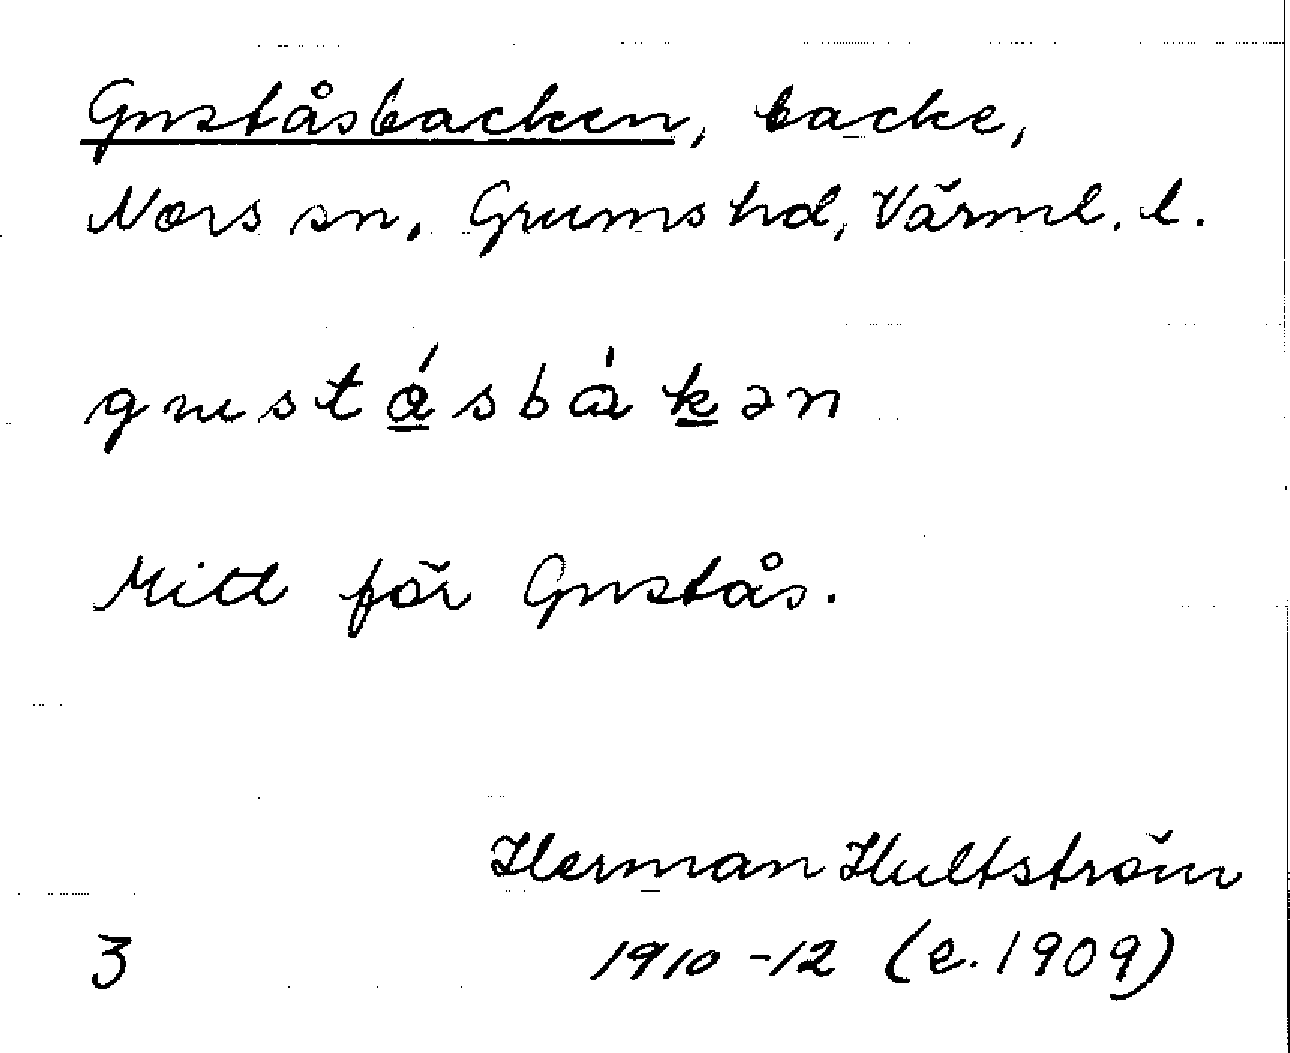 Guståsbacken, backe,
Nors sn, Grums hd, Värml. l.
gustásbàkən
Mitt för Gustås.
Herman Hultström
3 1910-12 (e. 1909)